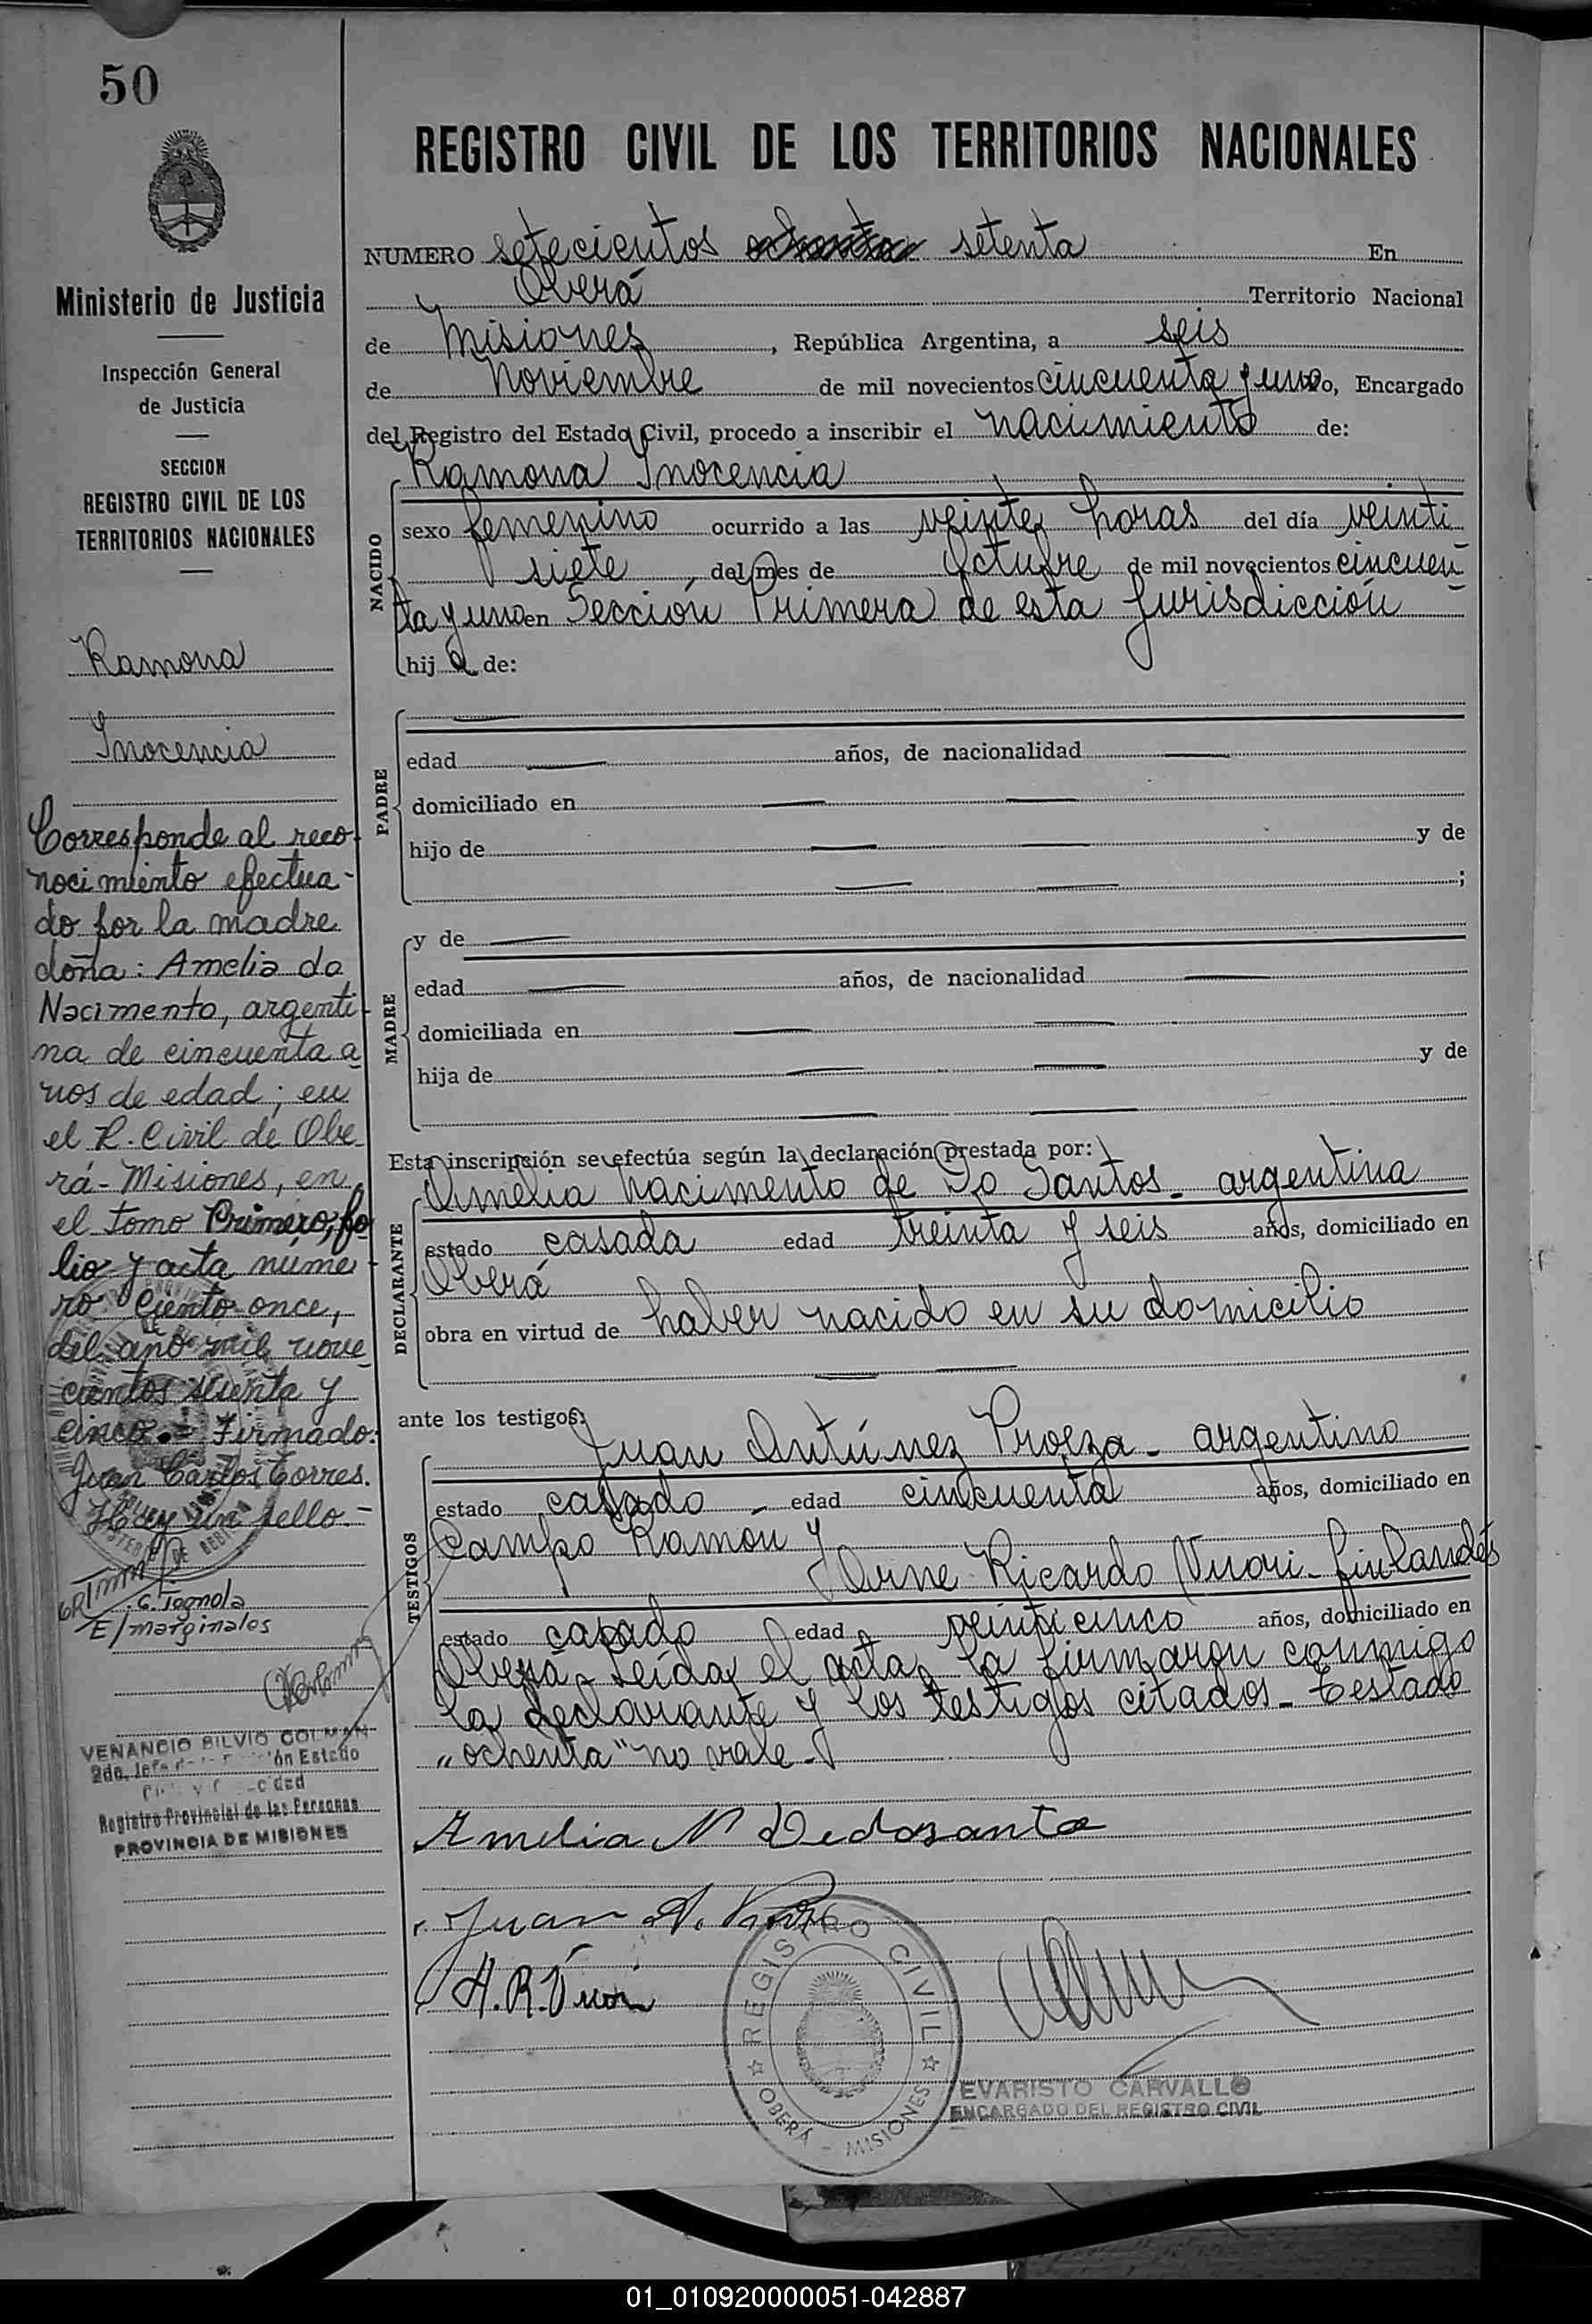 50
Ministerio de Justicia
Inspección General
de Justicia
SECCION
REGISTRO CIVIL DE LOS
TERRITORIOS NACIONALES
Ramona
Inocencia
Corresponde al reco-
nocimiento efectua-
do por la madre
doña: Amelia do
Nacimento, argenti-
na de cincuenta a
nos de edad; en
el R. Civil de Obe
rá - Misiones, en
el tomo Primero, fo
lio y acta núme-
ro Ciento once,
del año mil nove
cientos setenta y
cinco.= Firmado:
Juan Carlos Torres.
Hay un sello.-
C. Tognola
E/marginales
VENANCIO SILVIO COLMAN
2do. Jefe
Registro Provincial de las Personas
PROVINCIA DE MISIONES
REGISTRO CIVIL DE LOS TERRITORIOS NACIONALES
NUMERO setecientos ochenta setenta En
Oberá Territorio Nacional
de Misiones, República Argentina, a seis
de Noviembre de mil novecientos cincuenta y uno, Encargado
del Registro del Estado Civil, procedo a inscribir el nacimiento de:
Ramona Inocencia
NACIDO
sexo femenino ocurrido a las veinte horas del día veinti
siete, del mes de Octubre de mil novecientos cincuen-
ta y uno en Sección Primera de esta Jurisdicción
hij a de:
PADRE
edad años, de nacionalidad
domiciliado en
hijo de y de
;
MADRE
y de
edad años, de nacionalidad
domiciliada en
hija de y de
Esta inscripción se efectúa según la declaración prestada por:
DECLARANTE
Amelia Nacimento de Do Santos - argentina
estado casada edad treinta y seis años, domiciliado en
Oberá
obra en virtud de haber nacido en su domicilio
ante los testigos:
TESTIGOS
Juan Antúnez Proeza - argentino
estado casado - edad cincuenta años, domiciliado en
Campo Ramón y
Ricardo Vuori - finlandés
estado casado edad veinticinco años, domiciliado en
Oberá - Leída el acta, la firmaron conmigo
la declarante y los testigos citados - Testado
"ochenta" no vale -
Amelia N Dedosanto
Juan A.
H. R. Vuori
REGISTRO CIVIL
OBERÁ - MISIONES
EVARISTO CARVALLO
ENCARGADO DEL REGISTRO CIVIL
01_010920000051-042887